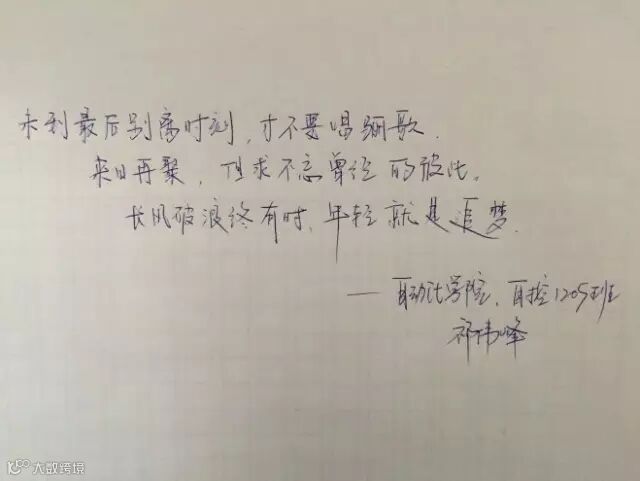 未到最后别离时刻，才不要唱骊歌.
来日再聚，但求不忘曾经的彼此。
长风破浪终有时，年轻就是追梦.
——自动化学院，自控1205班
祁伟峰
大数跨境